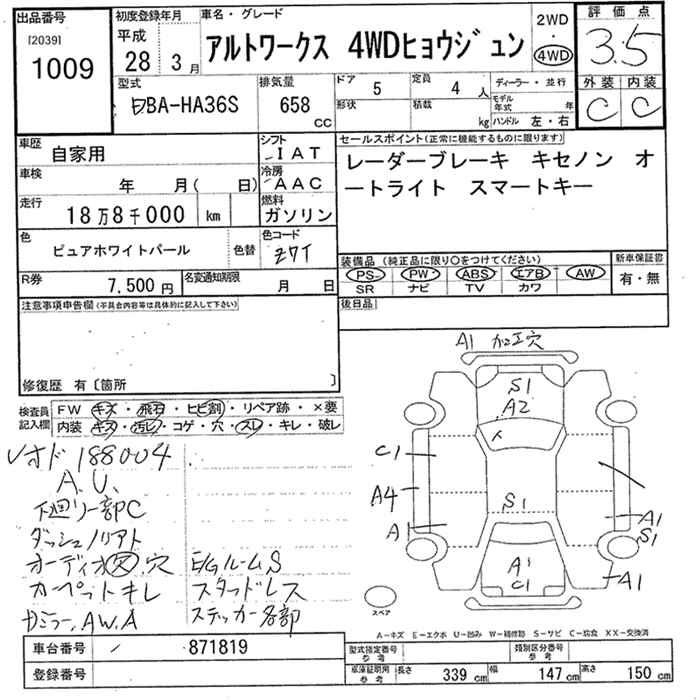 出品番号
[2039]
1009
初度登録年月
平成
28年 3月
車名・グレード
アルトワークス 4WDヒョウジュン
2WD
4WD
評価点
3.5
型式
DBA-HA36S
排気量
658 cc
ドア 5
定員 4人
形状
積載 kg
ディーラー・並行
モデル年式 年
ハンドル 左・右
外装 内装
C C
車歴
自家用
シフト
IAT
車検
年 月( 日)
冷房
AAC
走行
18万8千000 km
燃料
ガソリン
セールスポイント(正常に機能するものに限ります)
レーダーブレーキ キセノン オ
ートライト スマートキー
色
ピュアホワイトパール
色替
色コード
Z7T
R券
7,500円
名変通知期限
月 日
装備品(純正品に限り〇をつけてください) 新車保証書
PS PW ABS エアB AW 有・無
SR ナビ TV カワ
後日品
注意事項申告欄(不具合内容等は具体的に記入して下さい)
修復歴 有〔箇所 〕
検査員記入欄
FW キズ・飛石・ヒビ割・リペア跡・×要
内装 キズ・汚レ・コゲ・穴・スレ・キレ・破レ
オド188004
A.U.
下廻リ一部C
ダッシュノリアト
オーディオ欠穴 E/GルームS
カーペットキレ スタッドレス
ガミラー、A.W.A ステッカー各部
A1 加工穴
S1
A2
C1
A4
A1
S1
A1
S1
A1
C1
A1
スペア
A-キズ E-エクボ U-凹み W-補修跡 S-サビ C-腐食 XX-交換済
車台番号 871819
登録番号
型式指定番号 参考
類別区分番号 参考
車庫証明用 参考 長さ 339cm 幅 147cm 高さ 150cm